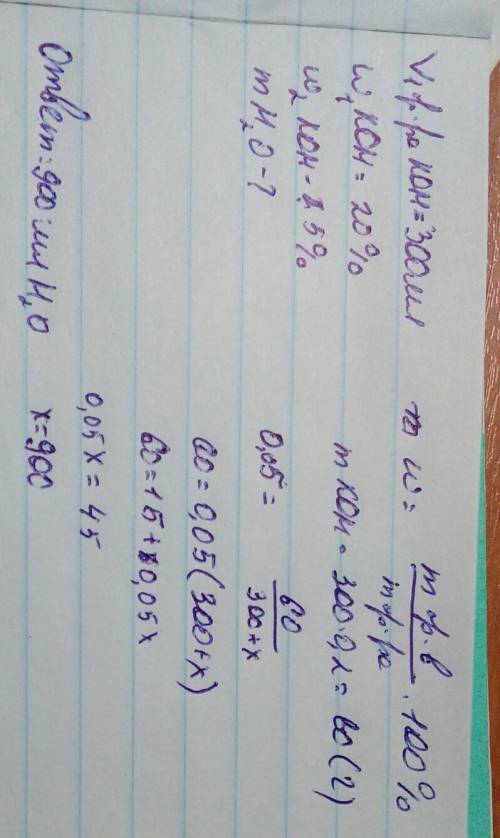 V₁ р-ра KOH = 300 мл
w₁ KOH = 20%
w₂ KOH - 5%
m H₂O - ?
w = m р.в / m р-ра · 100%
m KOH = 300·0,2 = 60 (г)
0,05 = 60 / 300+x
60 = 0,05 (300+x)
60 = 15 + 0,05x
0,05x = 45
x = 900
Ответ: 900 мл H₂O